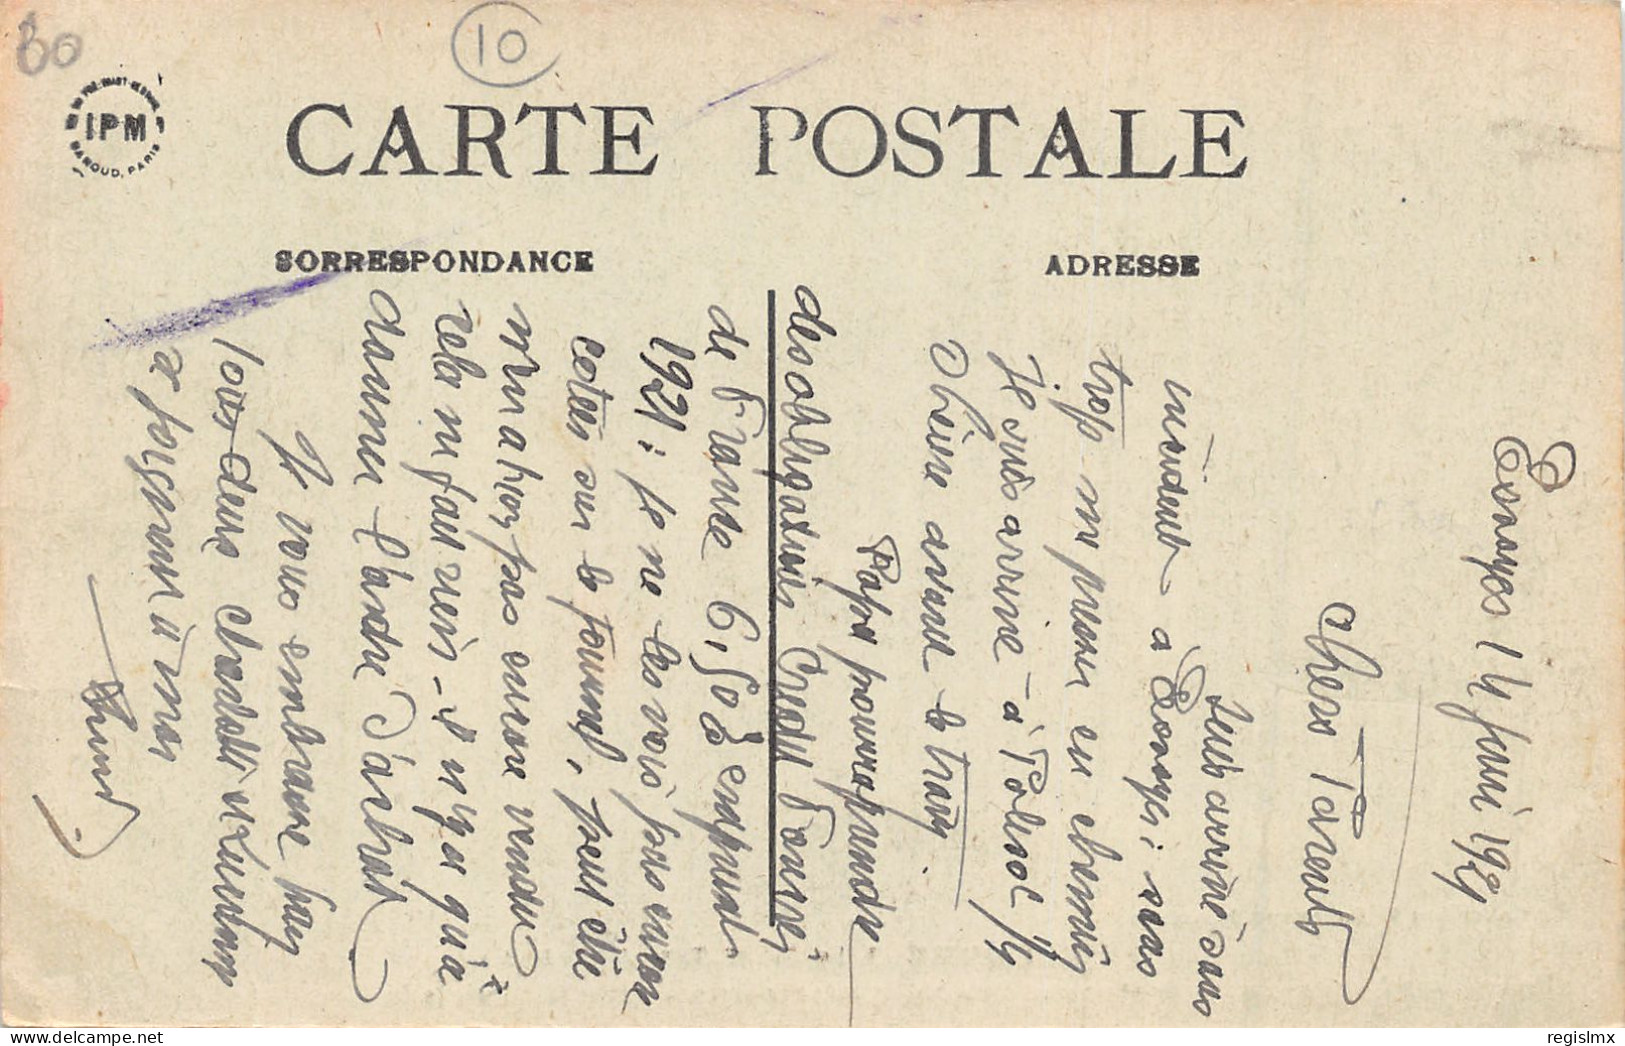 60
10
IPM
BAROUD, PARIS
CARTE POSTALE
CORRESPONDANCE
ADRESSE
Essoyes 14 Juin 1921
Chers Parents
suis arrivé sans
incident à Essoyes; sans
trop me presser en chemin
Je suis arrivé à Polisot 1/4
d'heure avant le train
Papa pourra prendre
des obligations Crédit Foncier
de France 6,50 % emprunt
1921; je ne les vois pas encore
cotées sur le journal, peut être
n'en a-t-on pas encore vendu
cela ne fait rien - il n'y a qu'à
donner l'ordre d'achat
Je vous embrasse bien
tous deux
à